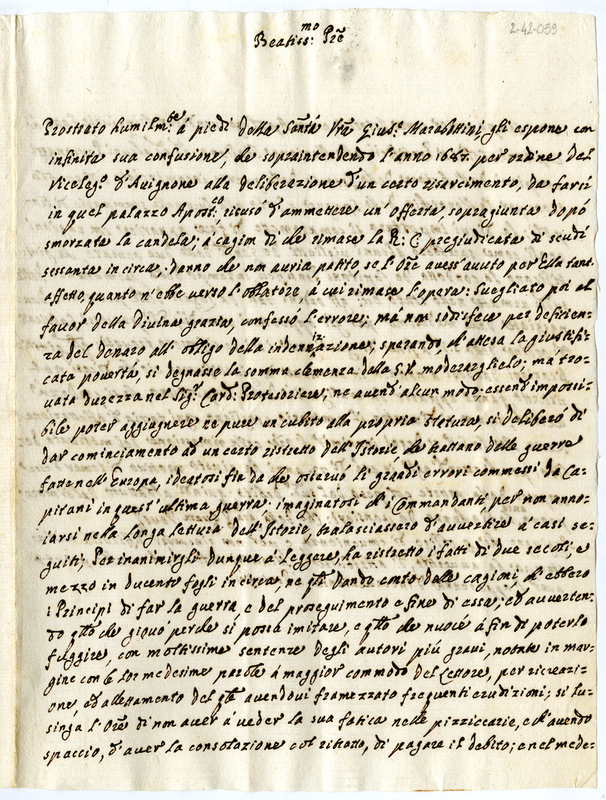 2-42-059
Beatiss:mo Pre
Prostrato humilm:te à piedi della Santà Vra Gius:e Marabottini gli espone con
infinita sua confusione, che sopraintendendo l'anno 1687. per ordine del
Viceleg:o d'Avignone alla deliberazione d'un certo risarcimento, da farsi
in quel palazzo Apost:co, ricusò d'ammettere un'offerta, sopragiunta dopò
smorzata la candela; à cagion di che rimase la R: C: pregiudicata di scudi
sessanta in circa, danno che non auria patito, se l'Ore avess'avuto per Ella tant'
affetto, quanto n'ebbe verso l'oblatore, à cui rimase l'opera: Svegliato poi al
favor della Divina grazia, confessò l'errore; mà non sodisfece per deficien-
za del denaro all'obligo della indennizazione; sperando, ch'attesa la giustifi-
cata povertà, si degnasse la somma clemenza della S.V. moderarglielo; mà tro-
vata durezza nel Sig:r Card: Protesoriere; ne avend'alcun modo, essend'impossi-
bile poter aggiugnere ne pure un'cubito alla propria statura, si deliberò di
dar cominciamento ad un certo ristretto dell'Istorie che trattano delle guerre
fatte nell'Europa, ideatosi fin da che osservò li grandi errori commessi da Ca-
pitani in quest'ultima guerra: imaginatosi ch'i Commandanti, per non anno-
iarsi nella longa lettura dell'Istorie, tralasciassero d'avvertire à casi se-
guiti; Per inanimirgli dunque à Leggere, ha ristretto i fatti di due secoli, e
mezzo in ducento fogli in circa, ne qli dando conto delle cagioni, ch'ebbero
i Principi di far la guerra, e del proseguimento e fine di essa; ed avverten-
do qllo che giovò perche si possa imitare, e qllo che nuocè à fin di poterlo
fuggire, con moltissime sentenze degli autori più gravi, notate in mar-
gine con le lor medesime parole à maggior commodo del Lettore, per ricreazi-
one, ed allettamento del qle avendovi framezzato frequenti erudizioni; si lu-
singa l'Ore di non aver à veder la sua fatica nelle pizzicarie, e ch'avendo
spaccio, d'aver la consolazione col ritratto, di pagare il debito; e nel mede-